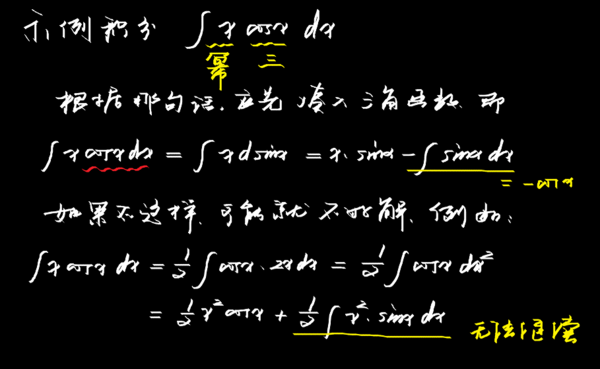 示例积分 ∫ x cosx dx
幂 三
根据那句话,应先凑入三角函数,即
∫ x cosx dx = ∫ x d sinx = x · sinx - ∫ sinx dx
= -cosx
如果不这样,可能就不能解,例如:
∫ x cosx dx = 1/2 ∫ cosx · 2x dx = 1/2 ∫ cosx dx²
= 1/2 x² cosx + 1/2 ∫ x² · sinx dx 无法继续